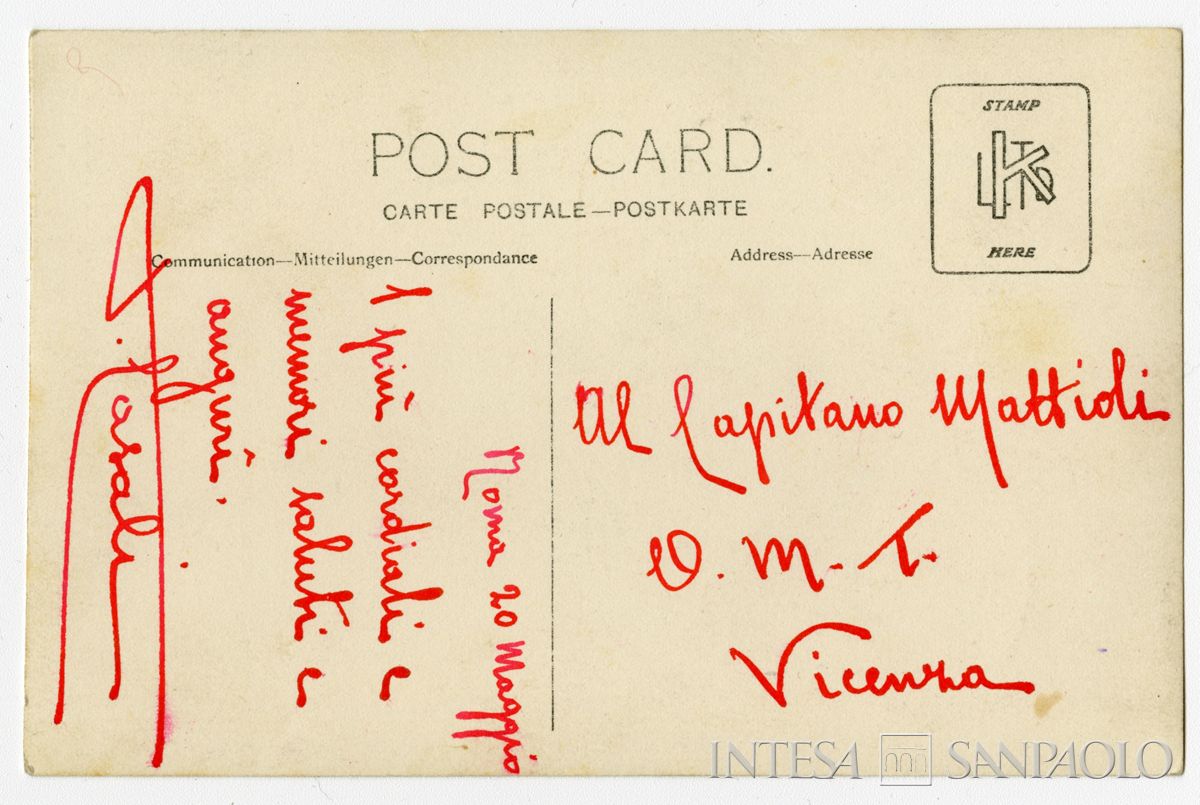 POST CARD.
CARTE POSTALE—POSTKARTE
Communication—Mitteilungen—Correspondance
Address—Adresse
STAMP
HERE
Roma 20 Maggio
I più cordiali e
memori saluti e
auguri.
Casali
Al Capitano Mattioli
O. M. T.
Vicenza
INTESA SANPAOLO